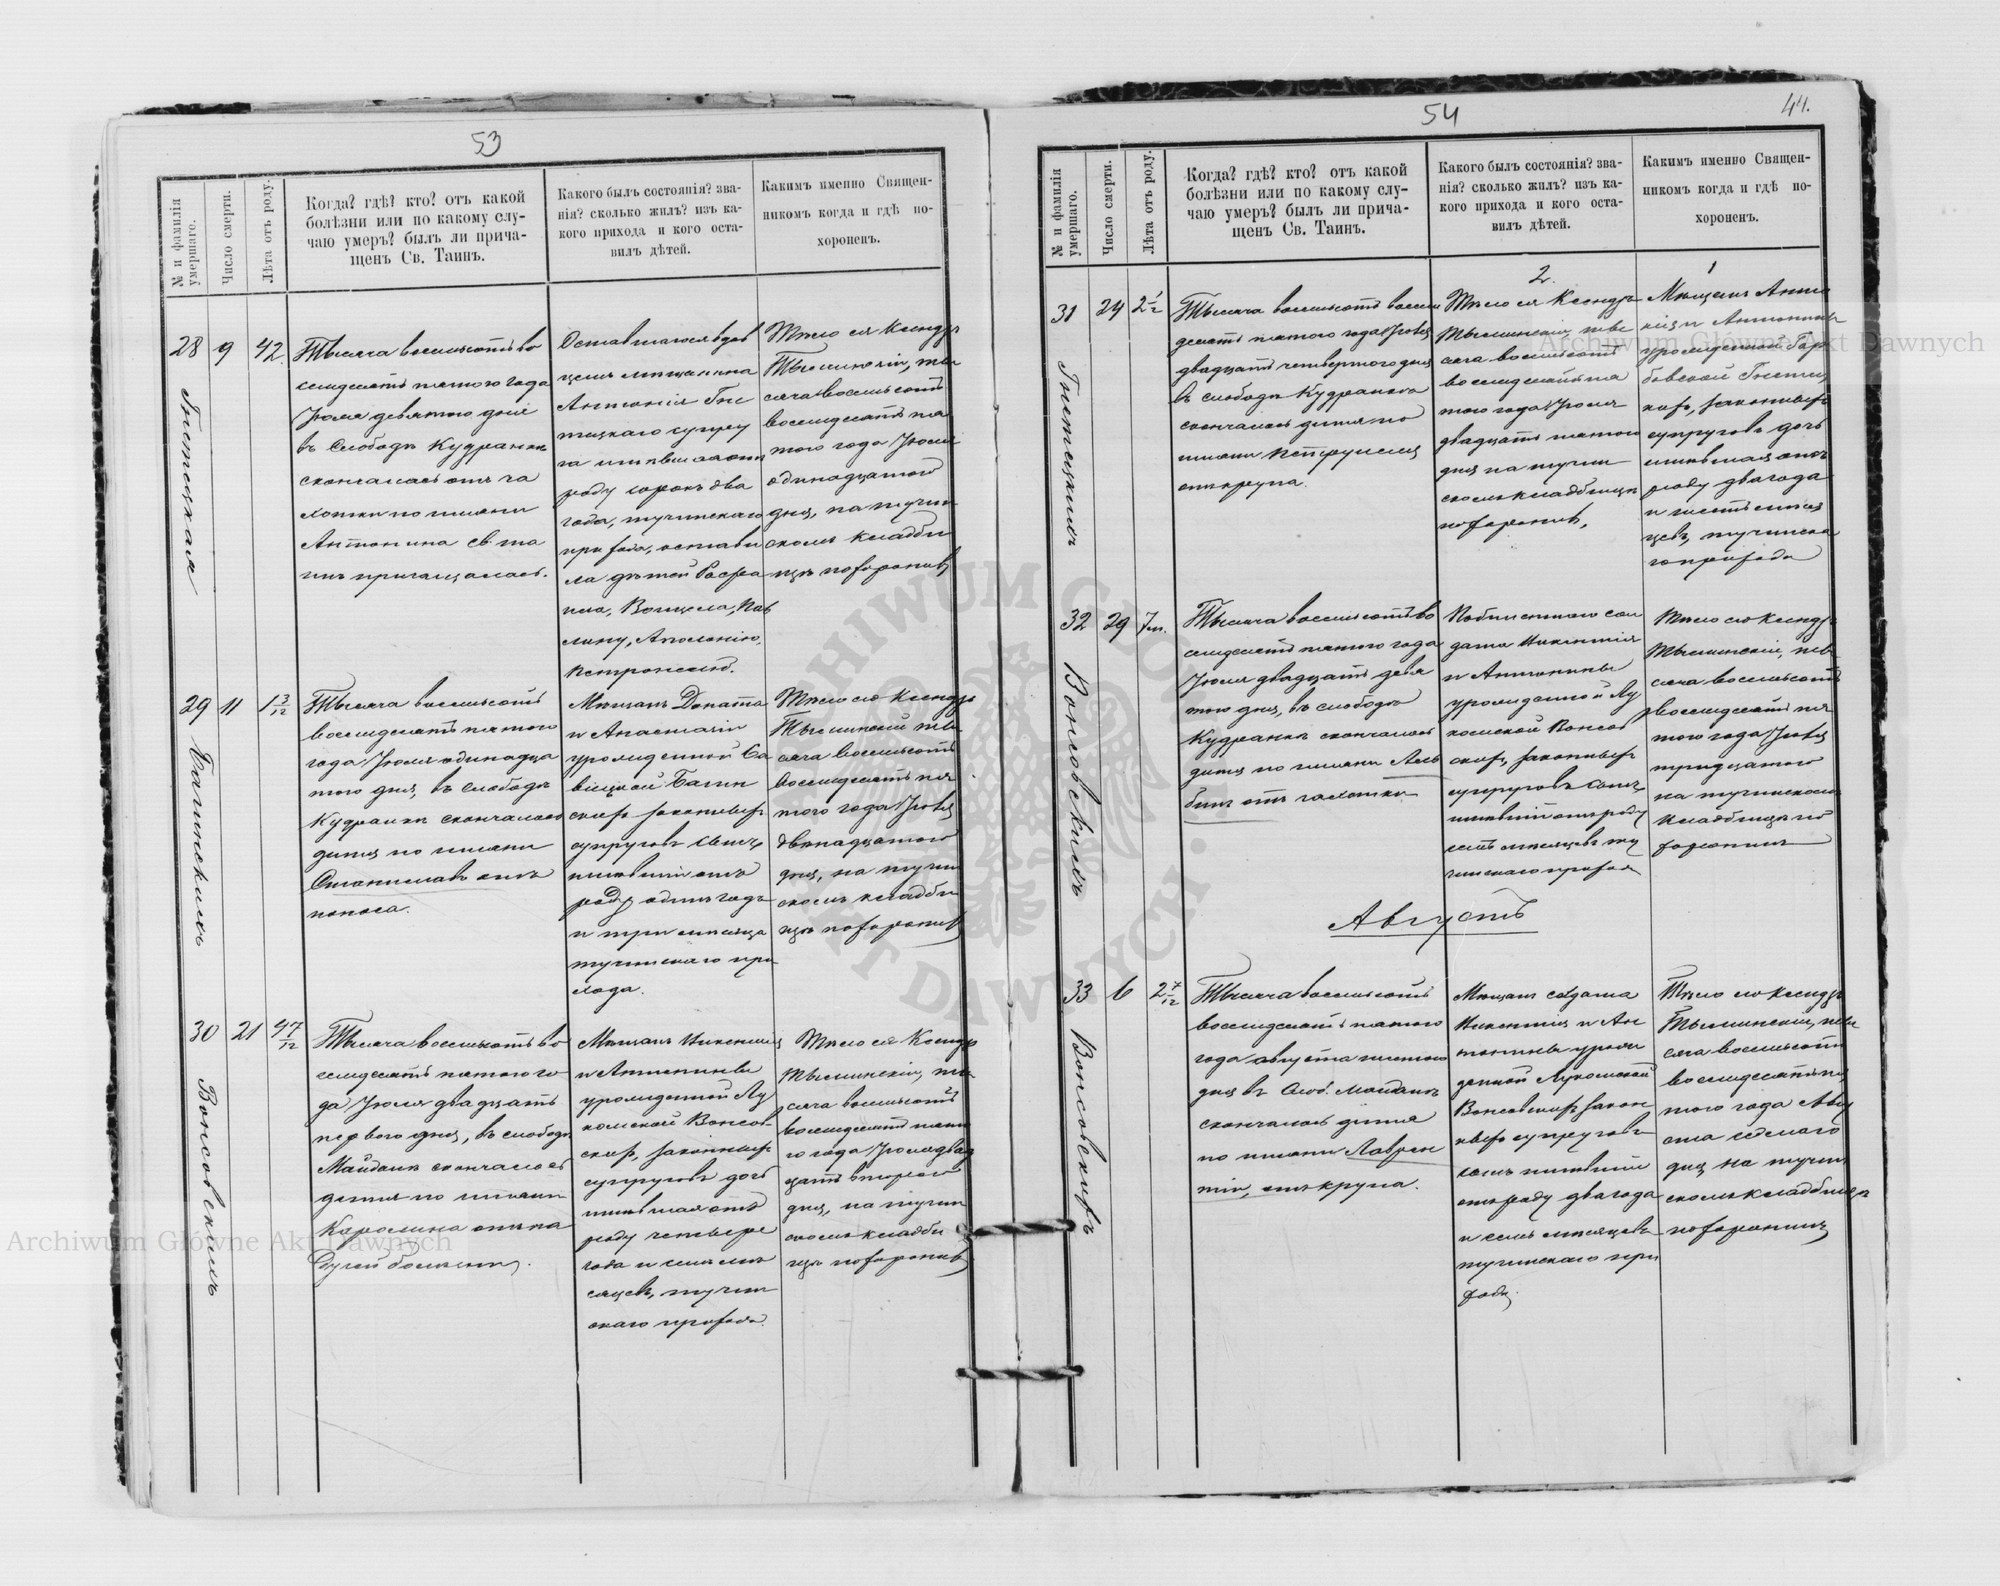 53
№ и фамилія умершаго.
Число смерти.
Лѣта отъ роду.
Когда? гдѣ? кто? отъ какой
болѣзни или по какому слу-
чаю умеръ? былъ ли прича-
щенъ Св. Таинъ.
Какого былъ состоянія? зва-
нія? сколько жилъ? изъ ка-
кого прихода и кого оста-
вилъ дѣтей.
Какимъ именно Священ-
никомъ когда и гдѣ по-
хороненъ.
28
9
42.
Тысяча восемьсотъ во
семдесятъ пятого года
Іюля девятого дня
въ Слободѣ Кудранкѣ
скончалась отъ ча
хотки по имени
Антонина св. та
инъ причащалась.
Оставшагося вдов
цемъ мѣщанина
Антонія
супру
га имѣвшая отъ
роду сорокъ два
года, тучинскаго
прихода, остави
ла дѣтей Рафа
ила,
лину, Аполонію,
Тѣло ея Ксендзъ
Тысминскій, ты
сяча восемьсотъ
восемдесятъ пя
того года Іюля
одинадцатого
дня, на тучин
скомъ кладби
щѣ похоронилъ
29
11
1 3/12
Тысяча восемьсотъ
восемдесятъ пятого
года Іюля одинадца
того дня, въ слободѣ
Кудранкѣ скончалось
дитя по имени
Станиславъ отъ
поноса.
Мѣщанъ Доната
и Анастасіи
урожденной Са
вицкой Багин
скихъ законныхъ
супруговъ сынъ
имѣвшій отъ
роду одинъ годъ
и три мѣсяца
тучинскаго при
хода.
Тѣло его Ксендзъ
Тысминскій ты
сяча восемьсотъ
восемдесятъ пя
того года Іюля
двѣнадцатого
дня, на тучин
скомъ кладби
щѣ похоронилъ
Багинскихъ
30
21
4 7/12
Тысяча восемьсотъ во
семдесятъ пятого го
да Іюля двадцать
первого дня, въ слободѣ
Майданѣ скончалось
дитя по имени
Каролина отъ па
дучей болѣзни.
Мѣщанъ Викентія
и Антонины
урожденной Лу
комской Вонсов
скихъ, законныхъ
супруговъ дочь
имѣвшая отъ
роду четыре
года и семь мѣ
сяцевъ, тучин
скаго прихода.
Тѣло ея Ксендзъ
Тысминскій, ты
сяча восемьсотъ
восемдесятъ пято
го года Іюля двад
цать второго
дня, на тучин
скомъ кладби
щѣ похоронилъ
Вонсовскихъ
54
44.
№ и фамилія умершаго.
Число смерти.
Лѣта отъ роду.
Когда? гдѣ? кто? отъ какой
болѣзни или по какому слу-
чаю умеръ? былъ ли прича-
щенъ Св. Таинъ.
Какого былъ состоянія? зва-
нія? сколько жилъ? изъ ка-
кого прихода и кого оста-
вилъ дѣтей.
Какимъ именно Священ-
никомъ когда и гдѣ по-
хороненъ.
31
24
2 1/2
Тысяча восемьсотъ восем
десятъ пятого года Іюля
двадцать четвертого дня
въ слободѣ Кудранкѣ
скончалась дитя по
имени
отъ крупа.
2.
Тѣло ея Ксендзъ
Тысминскій ты
сяча восемьсотъ
восемдесятъ пя
того года Іюля
двадцать пятого
дня на тучин
скомъ кладбищѣ
похоронилъ,
1
Мѣщанъ Анто
нія и Антонины
урожденной Гор
бовской
законныхъ
супруговъ дочь
имѣвшая отъ
роду два года
и шесть мѣся
цевъ, тучинска
го прихода
32
29
7м.
Тысяча восемьсотъ во
семдесятъ пятого года
Іюля двадцать девя
того дня, въ слободѣ
Кудранкѣ скончалось
дитя по имени Аль
бинъ отъ чахотки
сол
дата Викентія
и Антонины
урожденной Лу
комской Вонсов
скихъ, законныхъ
супруговъ сынъ,
имѣвшій отъ роду
семь мѣсяцевъ ту
чинскаго прихода
Тѣло его Ксендзъ
Тысминскій, ты
сяча восемьсотъ
восемдесятъ пя
того года Іюля
тридцатого
на тучинскомъ
кладбищѣ по
хоронилъ
Вонсовскихъ
Августъ
33
6
2 7/12
Тысяча восемьсотъ
восемдесятъ пятого
года августа шестого
дня въ Слоб. Майданѣ
скончалось дитя
по имени Лаврен
тій, отъ крупа.
Мѣщанъ солдата
Викентія и Ан
тонины урож
денной Лукомской
Вонсовскихъ закон
ныхъ супруговъ
сынъ имѣвшій
отъ роду два года
и семь мѣсяцевъ
тучинскаго при
хода.
Тѣло его Ксендзъ
Тысминскій, ты
сяча восемьсотъ
восемдесятъ пя
того года Авгу
ста седмаго
дня на тучин
скомъ кладбищѣ
похоронилъ
Вонсовскихъ
Archiwum Główne Akt Dawnych
Archiwum Główne Akt Dawnych
ARCHIWUM GŁÓWNE AKT DAWNYCH